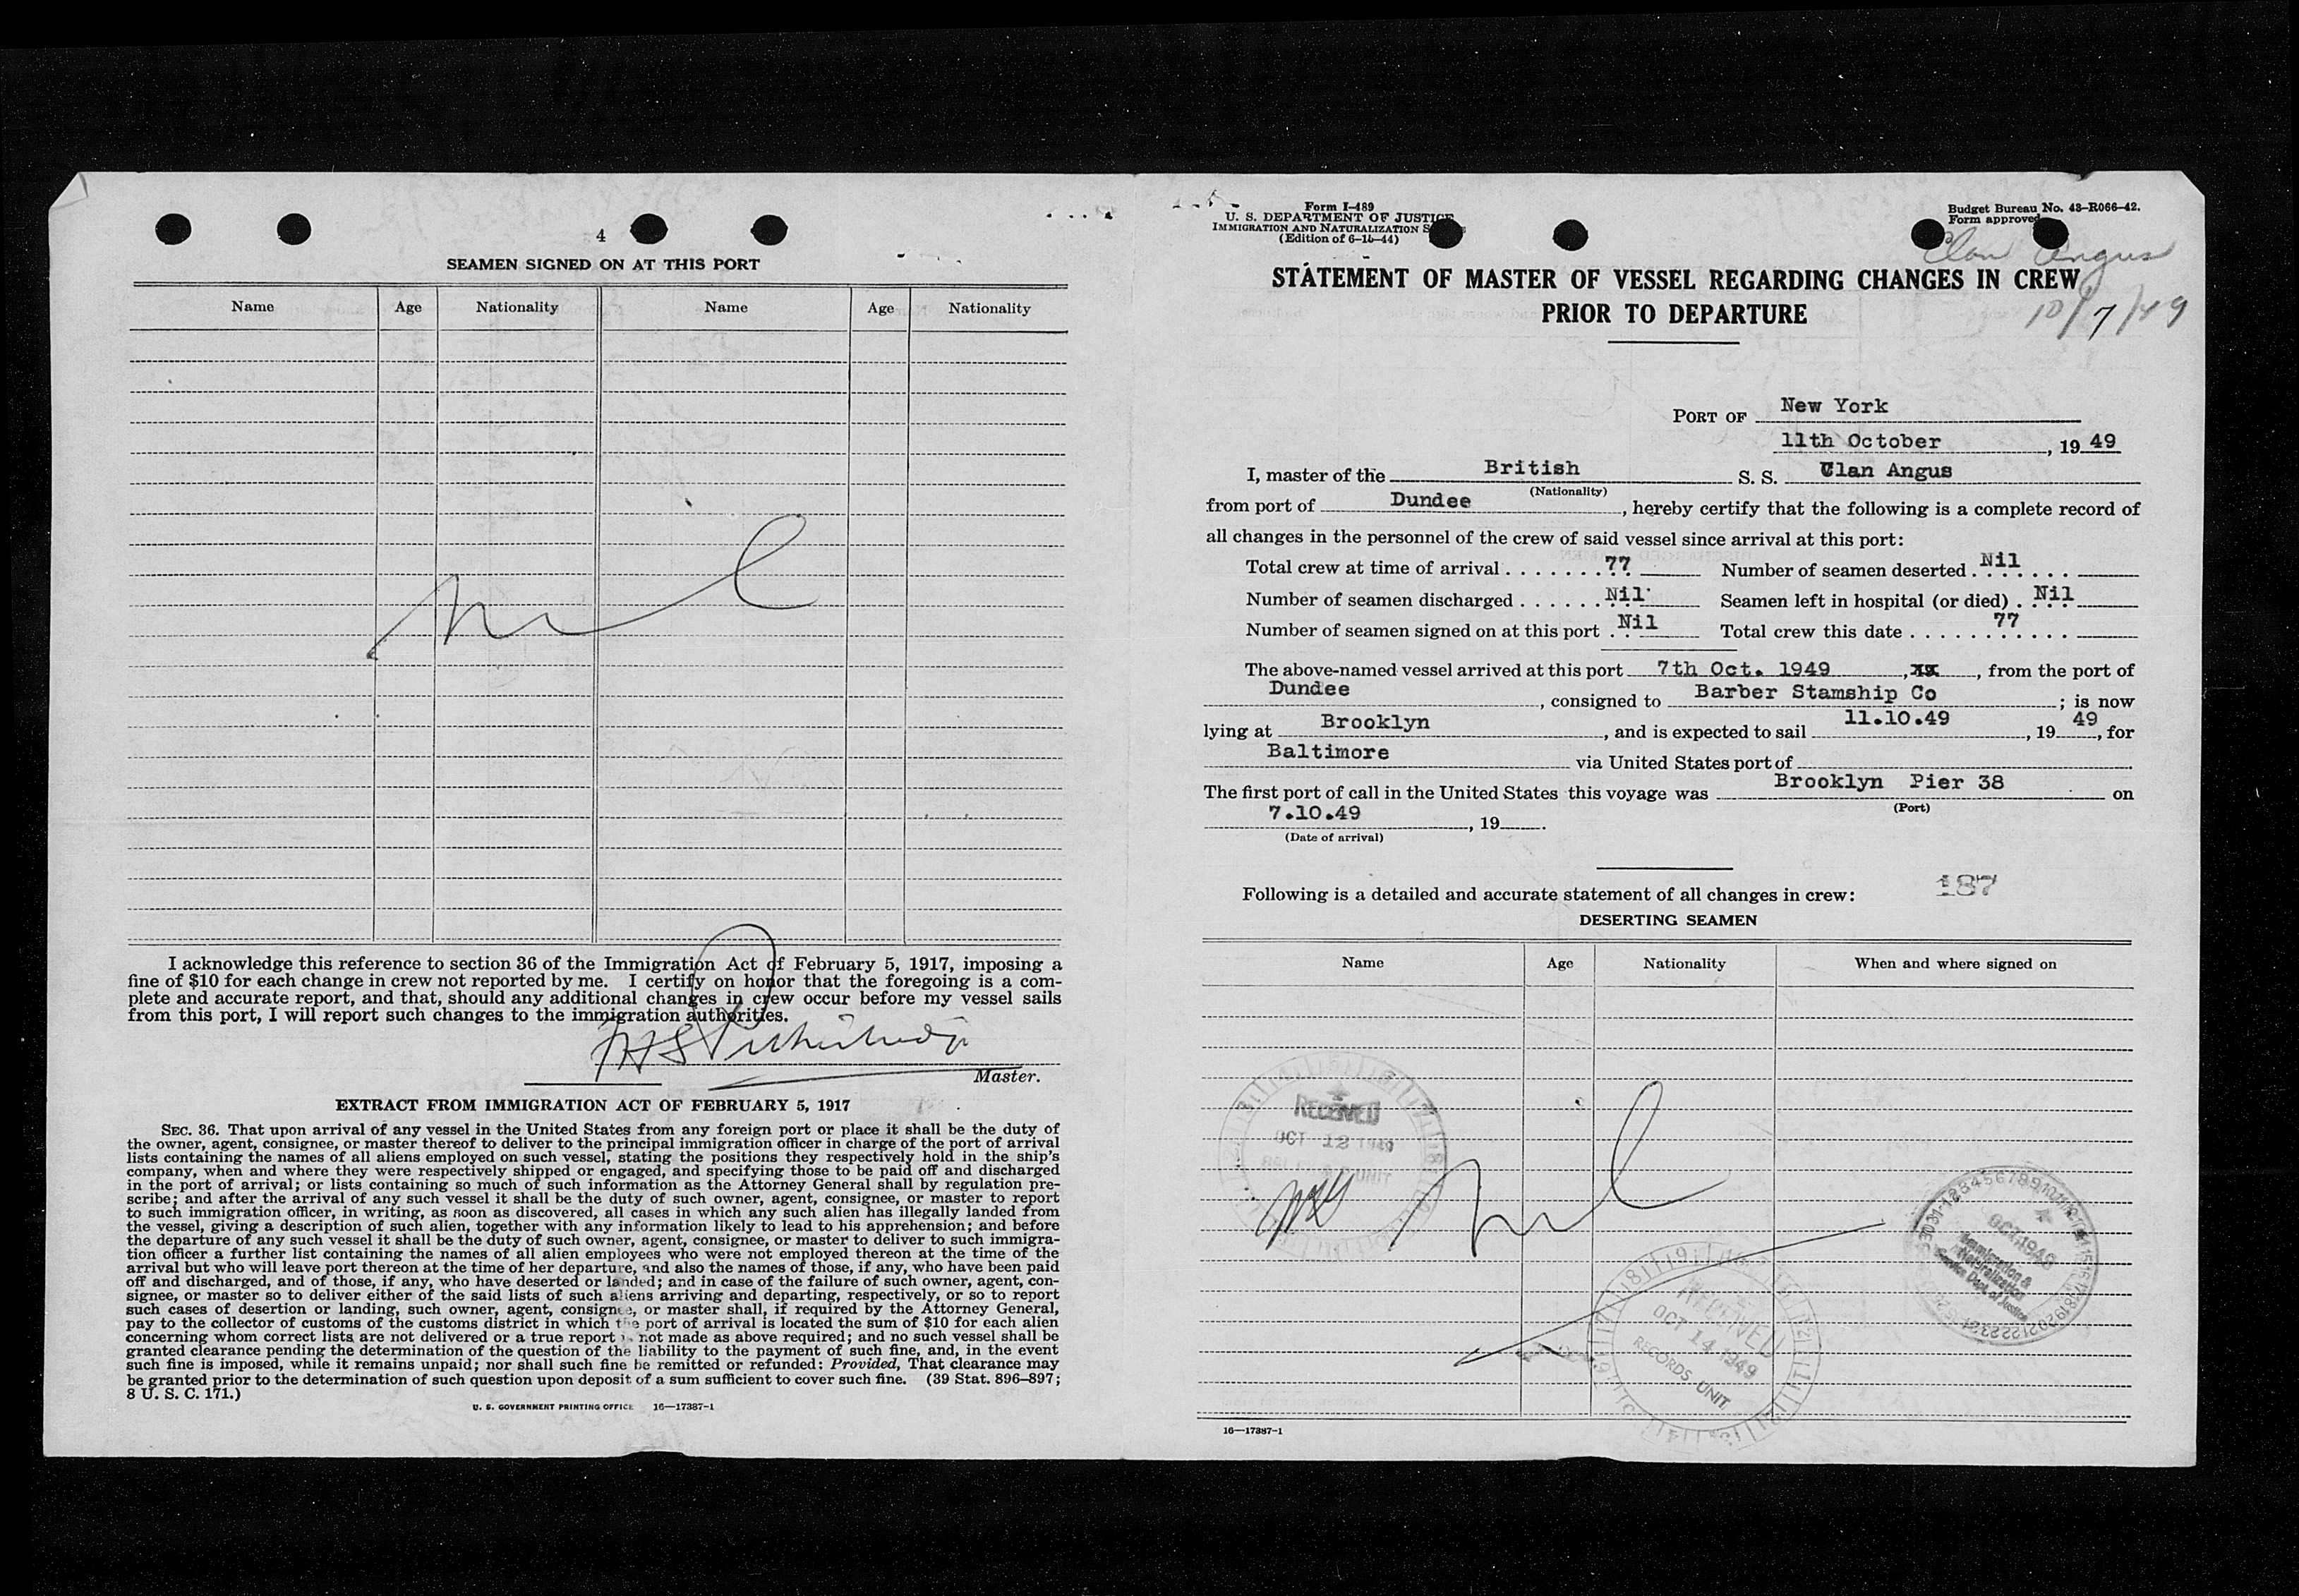 4
SEAMEN SIGNED ON AT THIS PORT
Name Age Nationality Name Age Nationality
nil
I acknowledge this reference to section 36 of the Immigration Act of February 5, 1917, imposing a
fine of $10 for each change in crew not reported by me. I certify on honor that the foregoing is a com-
plete and accurate report, and that, should any additional changes in crew occur before my vessel sails
from this port, I will report such changes to the immigration authorities.
Master.
EXTRACT FROM IMMIGRATION ACT OF FEBRUARY 5, 1917
SEC. 36. That upon arrival of any vessel in the United States from any foreign port or place it shall be the duty of
the owner, agent, consignee, or master thereof to deliver to the principal immigration officer in charge of the port of arrival
lists containing the names of all aliens employed on such vessel, stating the positions they respectively hold in the ship's
company, when and where they were respectively shipped or engaged, and specifying those to be paid off and discharged
in the port of arrival; or lists containing so much of such information as the Attorney General shall by regulation pre-
scribe; and after the arrival of any such vessel it shall be the duty of such owner, agent, consignee, or master to report
to such immigration officer, in writing, as soon as discovered, all cases in which any such alien has illegally landed from
the vessel, giving a description of such alien, together with any information likely to lead to his apprehension; and before
the departure of any such vessel it shall be the duty of such owner, agent, consignee, or master to deliver to such immigra-
tion officer a further list containing the names of all alien employees who were not employed thereon at the time of the
arrival but who will leave port thereon at the time of her departure, and also the names of those, if any, who have been paid
off and discharged, and of those, if any, who have deserted or landed; and in case of the failure of such owner, agent, con-
signee, or master so to deliver either of the said lists of such aliens arriving and departing, respectively, or so to report
such cases of desertion or landing, such owner, agent, consignee, or master shall, if required by the Attorney General,
pay to the collector of customs of the customs district in which the port of arrival is located the sum of $10 for each alien
concerning whom correct lists are not delivered or a true report is not made as above required; and no such vessel shall be
granted clearance pending the determination of the question of the liability to the payment of such fine, and, in the event
such fine is imposed, while it remains unpaid; nor shall such fine be remitted or refunded: Provided, That clearance may
be granted prior to the determination of such question upon deposit of a sum sufficient to cover such fine. (39 Stat. 896–897;
8 U. S. C. 171.)
U. S. GOVERNMENT PRINTING OFFICE 16—17387-1
Form I-489
U. S. DEPARTMENT OF JUSTICE
IMMIGRATION AND NATURALIZATION S
(Edition of 6-15-44)
Budget Bureau No. 43-R066-42.
Form approved
Clan Angus
10/7/49
STATEMENT OF MASTER OF VESSEL REGARDING CHANGES IN CREW
PRIOR TO DEPARTURE
PORT OF New York
11th October, 19 49
I, master of the British S. S. Clan Angus
(Nationality)
from port of Dundee, hereby certify that the following is a complete record of
all changes in the personnel of the crew of said vessel since arrival at this port:
Total crew at time of arrival 77 Number of seamen deserted Nil
Number of seamen discharged Nil Seamen left in hospital (or died) Nil
Number of seamen signed on at this port Nil Total crew this date 77
The above-named vessel arrived at this port 7th Oct. 1949, xx, from the port of
Dundee, consigned to Barber Stamship Co; is now
lying at Brooklyn, and is expected to sail 11.10.49, 19 49, for
Baltimore via United States port of
The first port of call in the United States this voyage was Brooklyn Pier 38 on
(Port)
7.10.49, 19
(Date of arrival)
Following is a detailed and accurate statement of all changes in crew: 187
DESERTING SEAMEN
Name Age Nationality When and where signed on
RECEIVED
OCT 12 1949
UNIT
nil
OCT 1949
Immigration &
Naturalization
Service Dept of Justice
RECEIVED
OCT 14 1949
RECORDS UNIT
16—17387-1